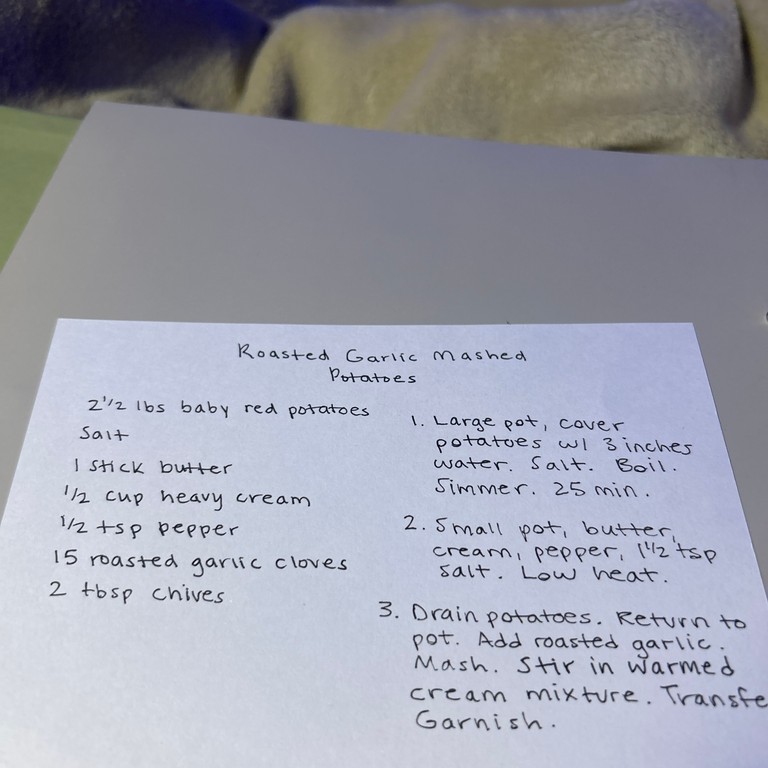 Roasted Garlic Mashed
Potatoes
2 1/2 lbs baby red potatoes
Salt
1 stick butter
1/2 cup heavy cream
1/2 tsp pepper
15 roasted garlic cloves
2 tbsp chives
1. Large pot, cover
potatoes w/ 3 inches
water. Salt. Boil.
Simmer. 25 min.
2. Small pot, butter,
cream, pepper, 1 1/2 tsp
salt. Low heat.
3. Drain potatoes. Return to
pot. Add roasted garlic.
Mash. Stir in warmed
cream mixture. Transfe
Garnish.